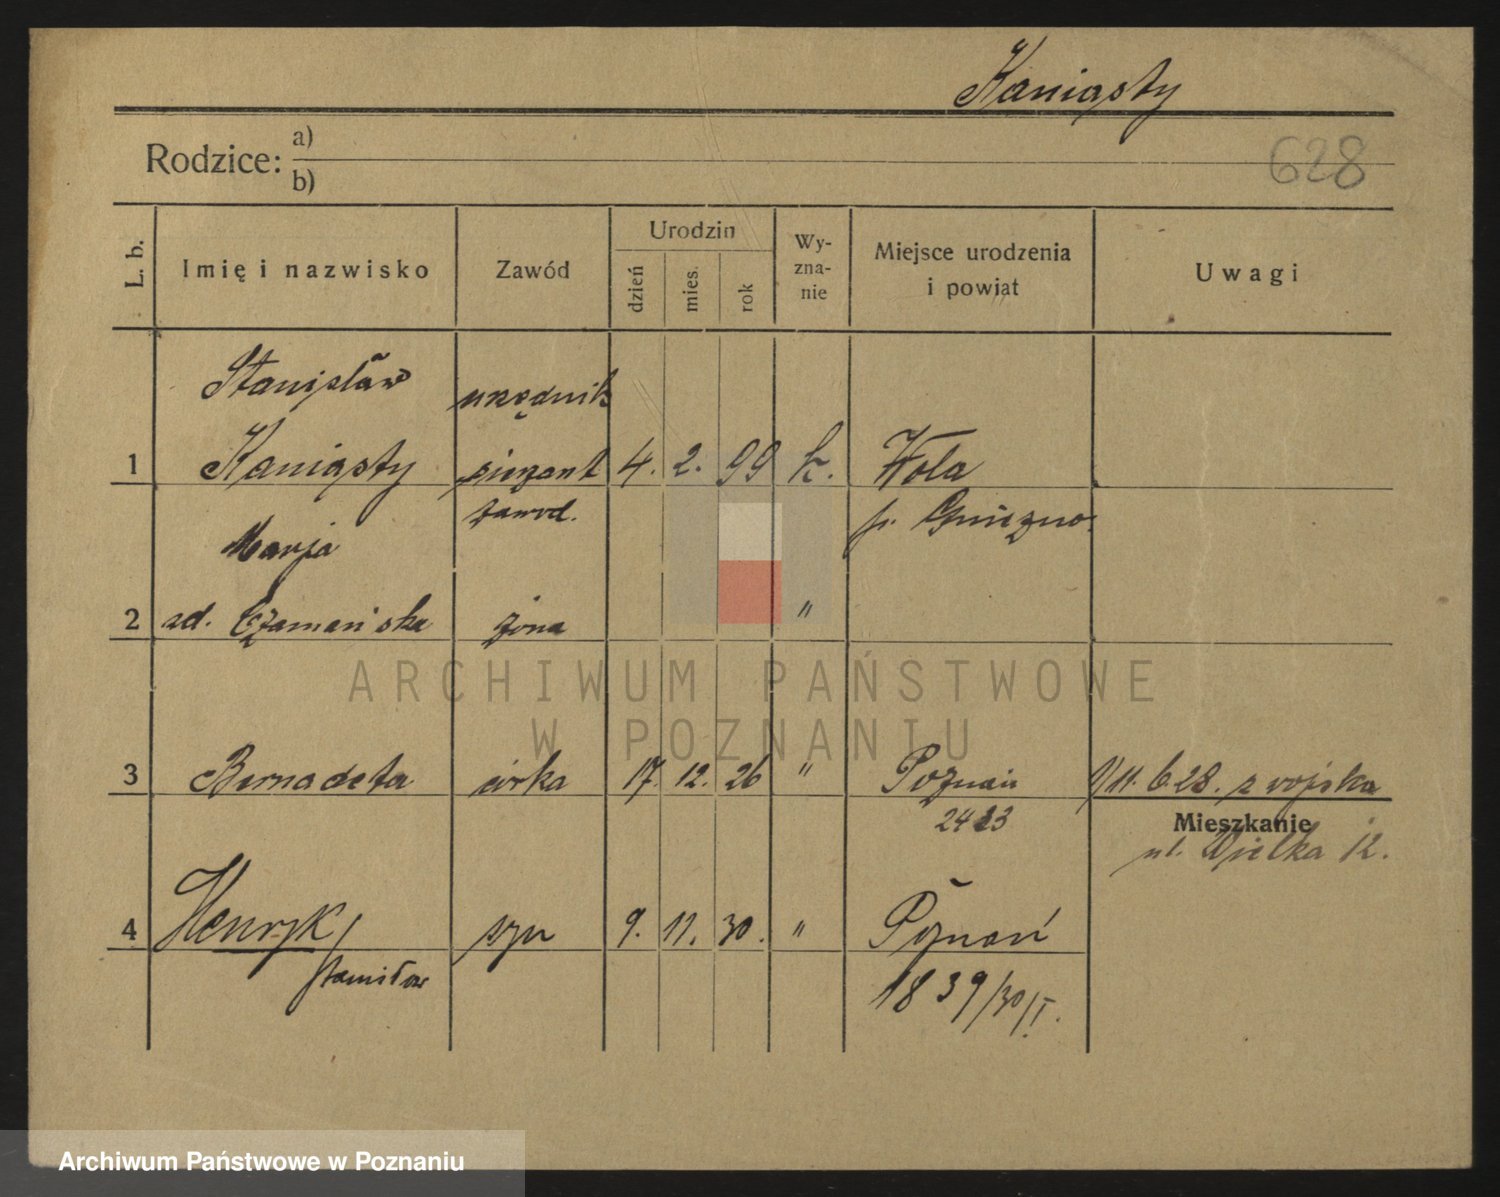 Kaniasty
Rodzice: a)
b)
628
L. b.
Imię i nazwisko
Zawód
Urodzin
dzień
mies.
rok
Wy-
zna-
nie
Miejsce urodzenia
i powiat
Uwagi
Stanisław
urzędnik
1 Kaniasty sierżant 4. 2. 99 k. Wola
zawod. p. Gniezno.
Marja
2 zd. Czamańska żona "
3 Bernadeta córka 17. 12. 26 " Poznań z wojska
Mieszkanie
ul. Wielka 12.
4 Henryk syn 9. 11. 30. " Poznań
Stanisław
1839/30/I.
ARCHIWUM PAŃSTWOWE
W POZNANIU
Archiwum Państwowe w Poznaniu